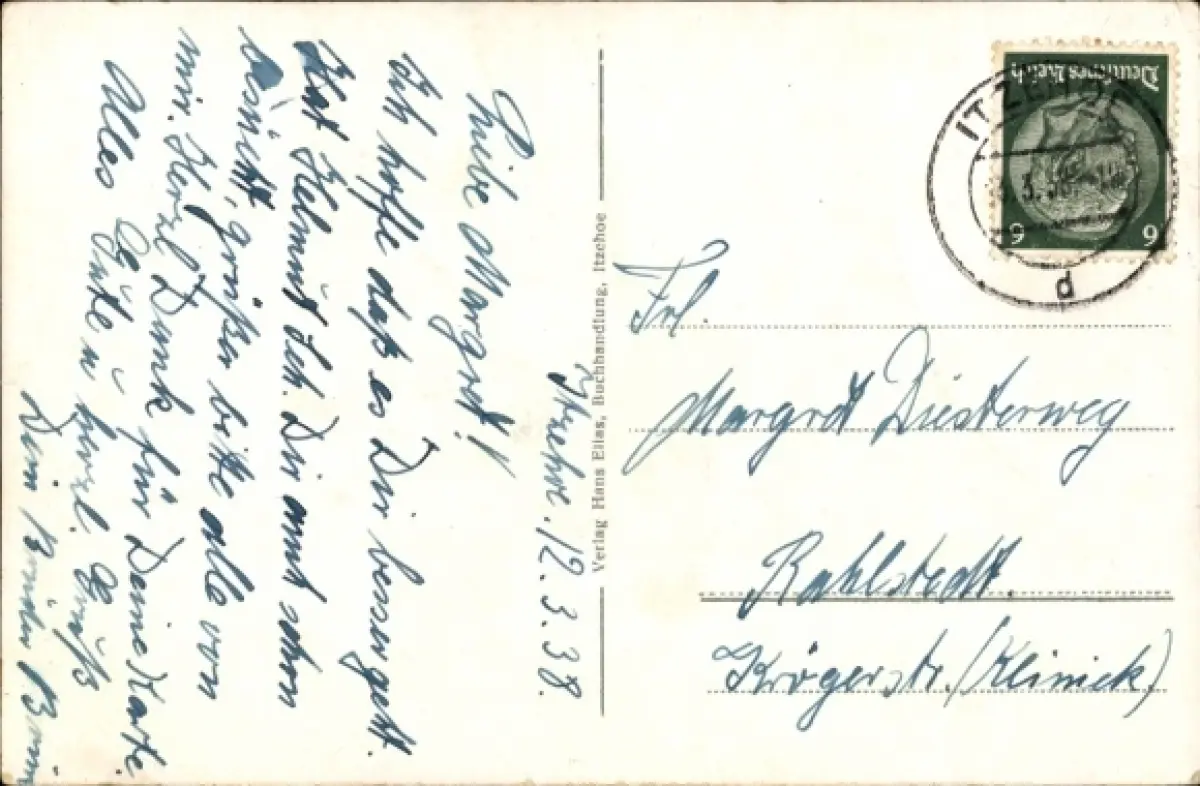 Itzehoe. 12.3.38.
Liebe Margret!
Ich hoffe daß es Dir besser geht.
Hat Helmut dich. Dir amt schon
besucht, grüßen bitte alle von
mir. Herzl Dank für Deine Karte.
Alles Gute u herzl. Grüß
Dein Bruder
Verlag Hans Elias, Buchhandlung, Itzehoe
Deutsches Reich
6 6
ITZEHOE
d
Frl.
Margret Diesterweg
Rahlstedt.
Krögerstr. (Klinick)